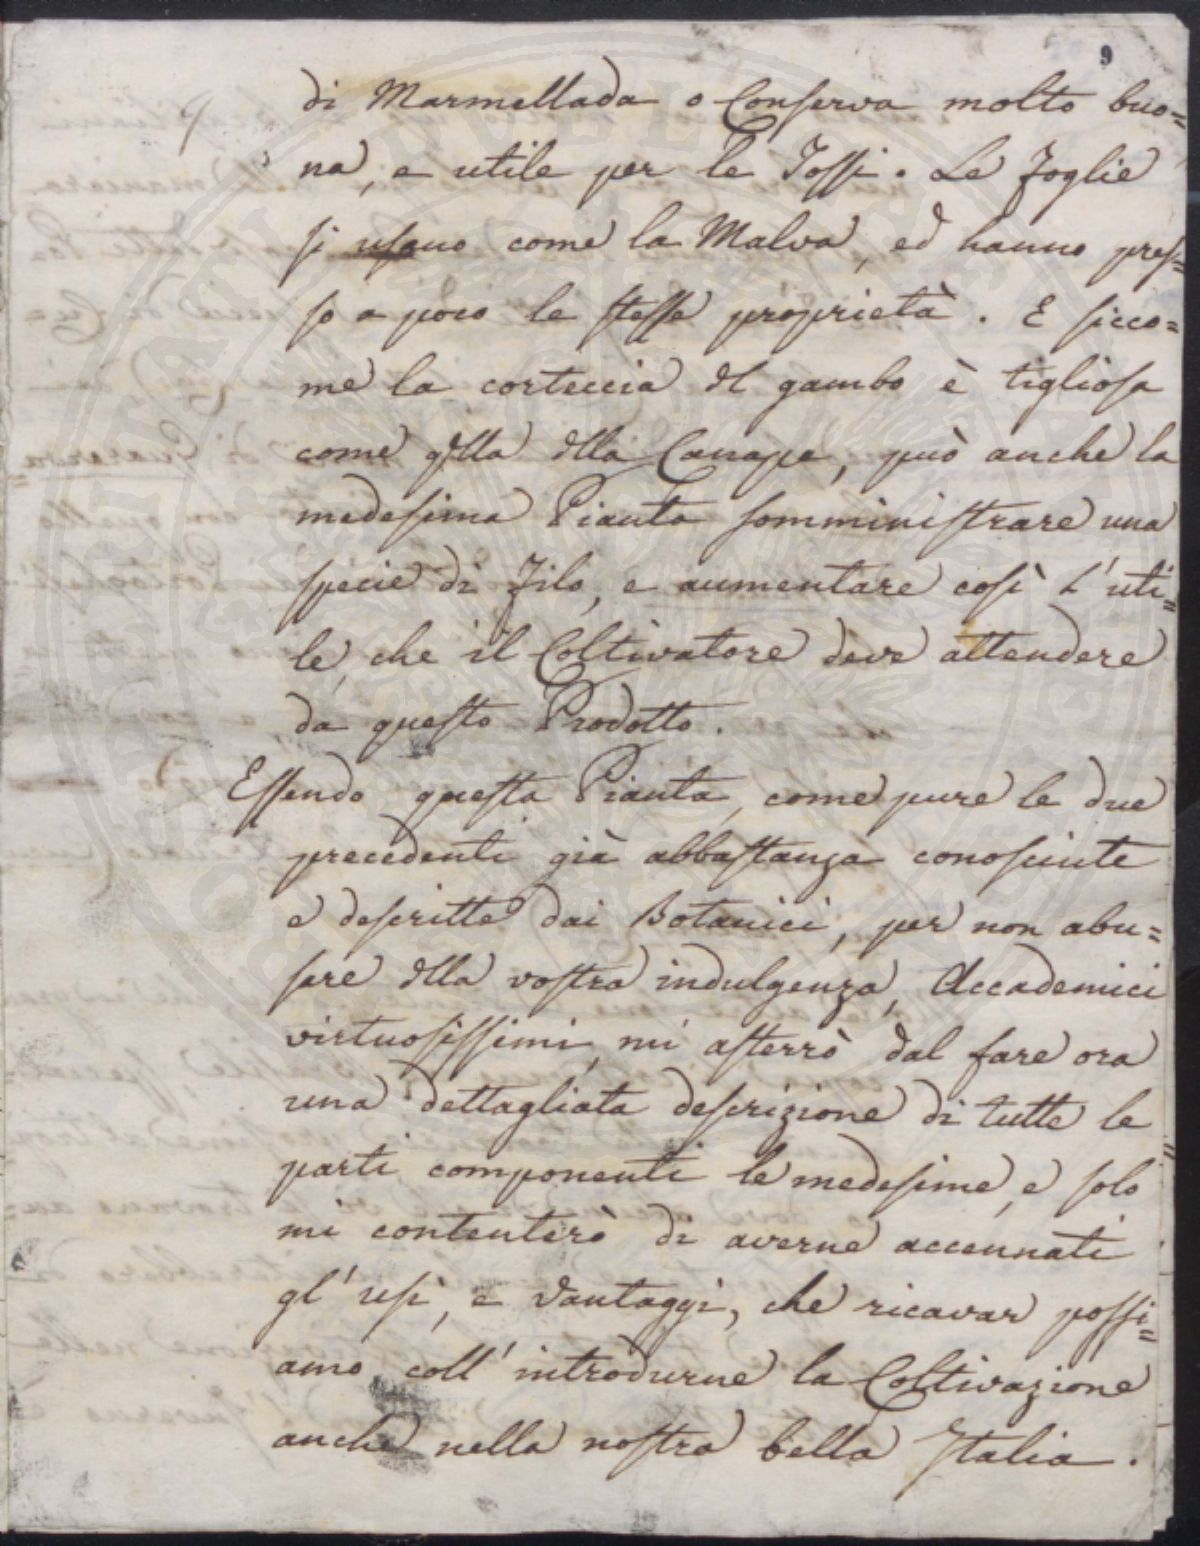 9
9
di Marmellada o Conserva molto buo=
na, e utile per le Tossi. Le Foglie
si usano come la Malva, ed hanno pres=
so a poco le stesse proprietà. E sicco=
me la corteccia dl gambo è tigliosa
come qlla dlla Canape, può anche la
medesima Pianta somministrare una
specie di Filo, e aumentare così l'uti=
le, che il Coltivatore deve attendere
da questo Prodotto.
Essendo questa Pianta, come pure le due
precedenti già abbastanza conosciute
e descritte dai Botanici, per non abu=
sare dlla vostra indulgenza, Accademici
virtuosissimi, mi asterrò dal fare ora
una dettagliata descrizione di tutte le
parti componenti le medesime, e solo
mi contenterò di averne accennati
gl'usi, e vantaggi, che ricavar possi=
amo coll'introdurne la Coltivazione
anche nella nostra bella Italia.